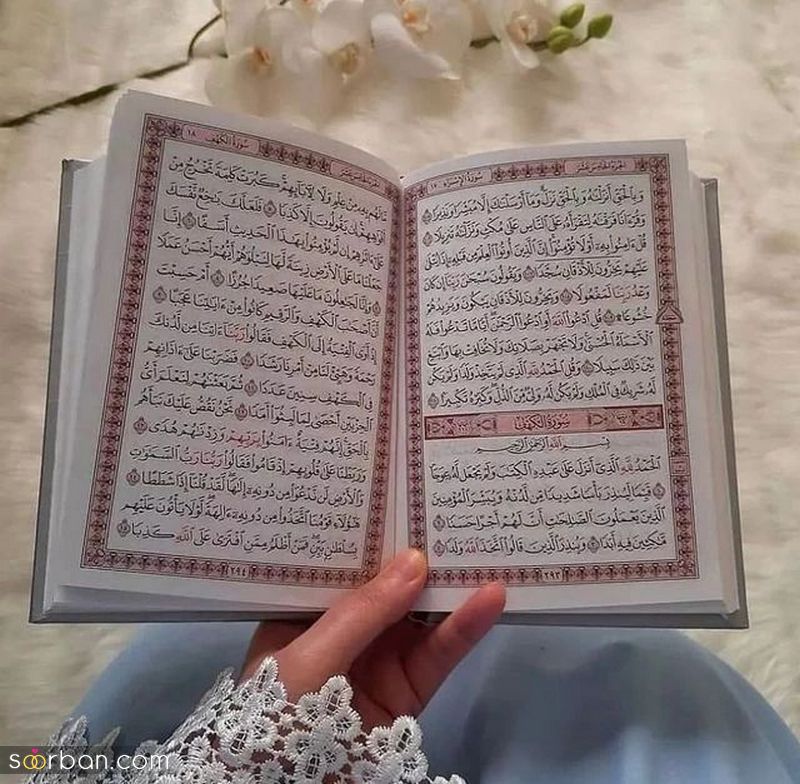 الجزء الخامس عشر
سورة الإسراء ١٧
وَبِالْحَقِّ أَنزَلْنَٰهُ وَبِالْحَقِّ نَزَلَ وَمَا أَرْسَلْنَٰكَ إِلَّا مُبَشِّرًا وَنَذِيرًا ١٠٥
وَقُرْءَانًا فَرَقْنَٰهُ لِتَقْرَأَهُ عَلَى النَّاسِ عَلَىٰ مُكْثٍ وَنَزَّلْنَٰهُ تَنزِيلًا ١٠٦
قُلْ ءَامِنُوا بِهِ أَوْ لَا تُؤْمِنُوا إِنَّ الَّذِينَ أُوتُوا الْعِلْمَ مِن قَبْلِهِ إِذَا يُتْلَىٰ
عَلَيْهِمْ يَخِرُّونَ لِلْأَذْقَانِ سُجَّدًا ١٠٧ وَيَقُولُونَ سُبْحَٰنَ رَبِّنَا إِن كَانَ
وَعْدُ رَبِّنَا لَمَفْعُولًا ١٠٨ وَيَخِرُّونَ لِلْأَذْقَانِ يَبْكُونَ وَيَزِيدُهُمْ
خُشُوعًا ١٠٩ قُلِ ادْعُوا اللَّهَ أَوِ ادْعُوا الرَّحْمَٰنَ أَيًّا مَّا تَدْعُوا فَلَهُ
الْأَسْمَاءُ الْحُسْنَىٰ وَلَا تَجْهَرْ بِصَلَاتِكَ وَلَا تُخَافِتْ بِهَا وَابْتَغِ
بَيْنَ ذَٰلِكَ سَبِيلًا ١١٠ وَقُلِ الْحَمْدُ لِلَّهِ الَّذِي لَمْ يَتَّخِذْ وَلَدًا وَلَمْ يَكُن
لَّهُ شَرِيكٌ فِي الْمُلْكِ وَلَمْ يَكُن لَّهُ وَلِيٌّ مِّنَ الذُّلِّ وَكَبِّرْهُ تَكْبِيرًا ١١١
سورة الكهف
بِسْمِ اللَّهِ الرَّحْمَٰنِ الرَّحِيمِ
الْحَمْدُ لِلَّهِ الَّذِي أَنزَلَ عَلَىٰ عَبْدِهِ الْكِتَٰبَ وَلَمْ يَجْعَل لَّهُ عِوَجًا
١ قَيِّمًا لِّيُنذِرَ بَأْسًا شَدِيدًا مِّن لَّدُنْهُ وَيُبَشِّرَ الْمُؤْمِنِينَ
الَّذِينَ يَعْمَلُونَ الصَّٰلِحَٰتِ أَنَّ لَهُمْ أَجْرًا حَسَنًا ٢
مَّٰكِثِينَ فِيهِ أَبَدًا ٣ وَيُنذِرَ الَّذِينَ قَالُوا اتَّخَذَ اللَّهُ وَلَدًا ٤
٢٩٣
الجزء الخامس عشر
سورة الكهف ١٨
مَّا لَهُم بِهِ مِنْ عِلْمٍ وَلَا لِءَابَائِهِمْ كَبُرَتْ كَلِمَةً تَخْرُجُ مِنْ
أَفْوَٰهِهِمْ إِن يَقُولُونَ إِلَّا كَذِبًا ٥ فَلَعَلَّكَ بَٰخِعٌ نَّفْسَكَ
عَلَىٰ ءَاثَٰرِهِمْ إِن لَّمْ يُؤْمِنُوا بِهَٰذَا الْحَدِيثِ أَسَفًا ٦ إِنَّا
جَعَلْنَا مَا عَلَى الْأَرْضِ زِينَةً لَّهَا لِنَبْلُوَهُمْ أَيُّهُمْ أَحْسَنُ عَمَلًا
٧ وَإِنَّا لَجَٰعِلُونَ مَا عَلَيْهَا صَعِيدًا جُرُزًا ٨ أَمْ حَسِبْتَ
أَنَّ أَصْحَٰبَ الْكَهْفِ وَالرَّقِيمِ كَانُوا مِنْ ءَايَٰتِنَا عَجَبًا ٩
إِذْ أَوَى الْفِتْيَةُ إِلَى الْكَهْفِ فَقَالُوا رَبَّنَا ءَاتِنَا مِن لَّدُنكَ
رَحْمَةً وَهَيِّئْ لَنَا مِنْ أَمْرِنَا رَشَدًا ١٠ فَضَرَبْنَا عَلَىٰ ءَاذَانِهِمْ
فِي الْكَهْفِ سِنِينَ عَدَدًا ١١ ثُمَّ بَعَثْنَٰهُمْ لِنَعْلَمَ أَيُّ
الْحِزْبَيْنِ أَحْصَىٰ لِمَا لَبِثُوا أَمَدًا ١٢ نَّحْنُ نَقُصُّ عَلَيْكَ نَبَأَهُم
بِالْحَقِّ إِنَّهُمْ فِتْيَةٌ ءَامَنُوا بِرَبِّهِمْ وَزِدْنَٰهُمْ هُدًى ١٣
وَرَبَطْنَا عَلَىٰ قُلُوبِهِمْ إِذْ قَامُوا فَقَالُوا رَبُّنَا رَبُّ السَّمَٰوَٰتِ
وَالْأَرْضِ لَن نَّدْعُوَا مِن دُونِهِ إِلَٰهًا لَّقَدْ قُلْنَا إِذًا شَطَطًا ١٤
هَٰؤُلَاءِ قَوْمُنَا اتَّخَذُوا مِن دُونِهِ ءَالِهَةً لَّوْلَا يَأْتُونَ عَلَيْهِم
بِسُلْطَٰنٍ بَيِّنٍ فَمَنْ أَظْلَمُ مِمَّنِ افْتَرَىٰ عَلَى اللَّهِ كَذِبًا ١٥
٢٩٤
soorban.com